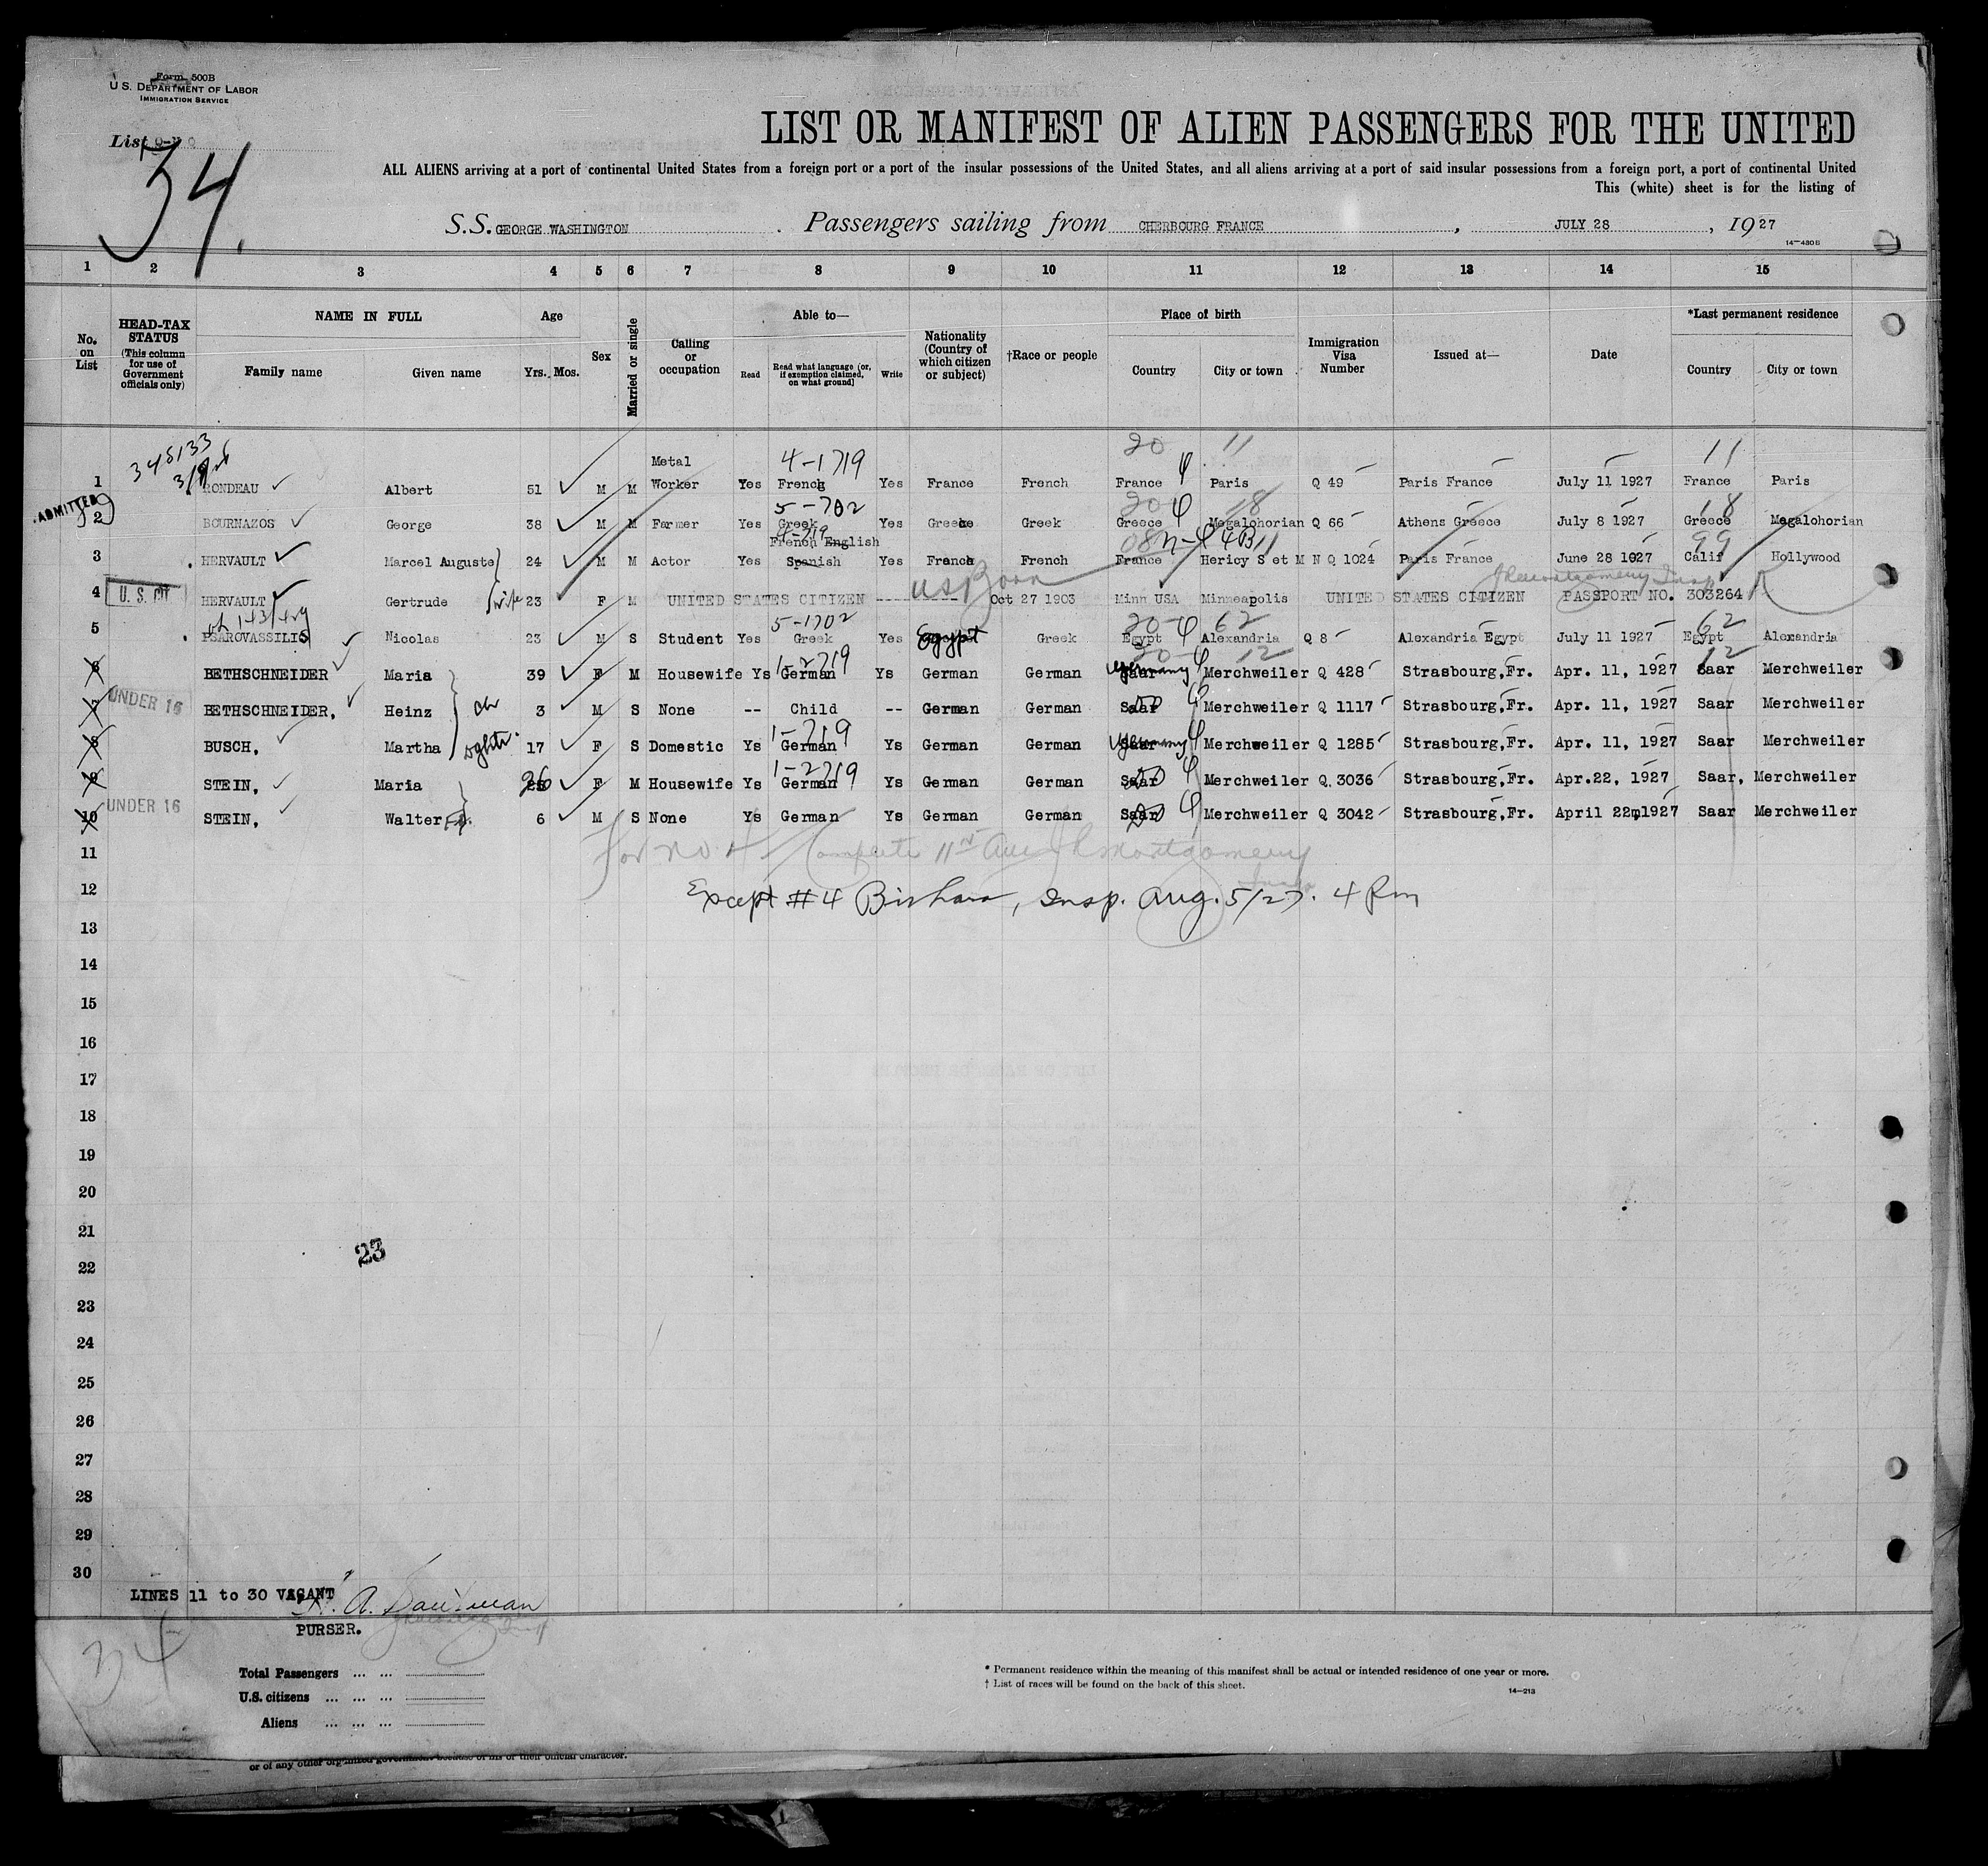 Form 500B
U.S. DEPARTMENT OF LABOR
IMMIGRATION SERVICE
List
34.
LIST OR MANIFEST OF ALIEN PASSENGERS FOR THE UNITED
ALL ALIENS arriving at a port of continental United States from a foreign port or a port of the insular possessions of the United States, and all aliens arriving at a port of said insular possessions from a foreign port, a port of continental United
This (white) sheet is for the listing of
S.S. GEORGE WASHINGTON. Passengers sailing from CHERBOURG FRANCE, JULY 28, 1927
14—480B
1 2 3 4 5 6 7 8 9 10 11 12 13 14 15
No. on List
HEAD-TAX STATUS (This column for use of Government officials only)
NAME IN FULL
Family name Given name
Age
Yrs. Mos.
Sex
Married or single
Calling or occupation
Able to—
Read
Read what language (or, if exemption claimed, on what ground)
Write
Nationality (Country of which citizen or subject)
†Race or people
Place of birth
Country City or town
Immigration Visa Number
Issued at—
Date
*Last permanent residence
Country City or town
345133 4-1719 20 11 11
1 RONDEAU Albert 51 M M Metal Worker Yes French Yes France French France Paris Q 49 Paris France July 11 1927 France Paris
ADMITTED
5-702 20 18 18
2 BOURNAZOS George 38 M M Farmer Yes Greek Yes Greece Greek Greece Megalohorian Q 66 Athens Greece July 8 1927 Greece Megalohorian
4-719 99
3 HERVAULT Marcel Auguste 24 M M Actor Yes French English Spanish Yes France French France Hericy S et M N Q 1024 Paris France June 28 1927 Calif Hollywood
U.S. CIT
US Born
4 HERVAULT Gertrude wife 23 F M UNITED STATES CITIZEN Oct 27 1903 Minn USA Minneapolis UNITED STATES CITIZEN PASSPORT NO. 303264
5-1702 20 62 62
5 PSAROVASSILIS Nicolas 23 M S Student Yes Greek Yes Egypt Greek Egypt Alexandria Q 8 Alexandria Egypt July 11 1927 Egypt Alexandria
1-2719 20 12 12
6 BETHSCHNEIDER Maria 39 F M Housewife Ys German Ys German German Germany Saar Merchweiler Q 428 Strasbourg,Fr. Apr. 11, 1927 Saar Merchweiler
UNDER 16
7 BETHSCHNEIDER, Heinz ch 3 M S None -- Child -- German German Saar Merchweiler Q 1117 Strasbourg,Fr. Apr. 11, 1927 Saar Merchweiler
1-719
8 BUSCH, Martha 17 F S Domestic Ys German Ys German German Germany Saar Merchweiler Q 1285 Strasbourg,Fr. Apr. 11, 1927 Saar Merchweiler
1-2719
9 STEIN, Maria 26 F M Housewife Ys German Ys German German Saar Merchweiler Q 3036 Strasbourg,Fr. Apr.22, 1927 Saar, Merchweiler
UNDER 16
10 STEIN, Walter 6 M S None Ys German Ys German German Saar Merchweiler Q 3042 Strasbourg,Fr. April 22,1927 Saar Merchweiler
11 For no 4 Complete JR Montgomery
12 Except #4 Insp. Aug. 5/27. 4 Pm
13
14
15
16
17
18
19
20
21
23
22
23
24
25
26
27
28
29
30
LINES 11 to 30 VACANT
PURSER.
34
Total Passengers ... ...
U.S. citizens ... ... ...
Aliens ... ... ...
* Permanent residence within the meaning of this manifest shall be actual or intended residence of one year or more.
† List of races will be found on the back of this sheet.
14—213
or of any other organized government because of his or their official character.